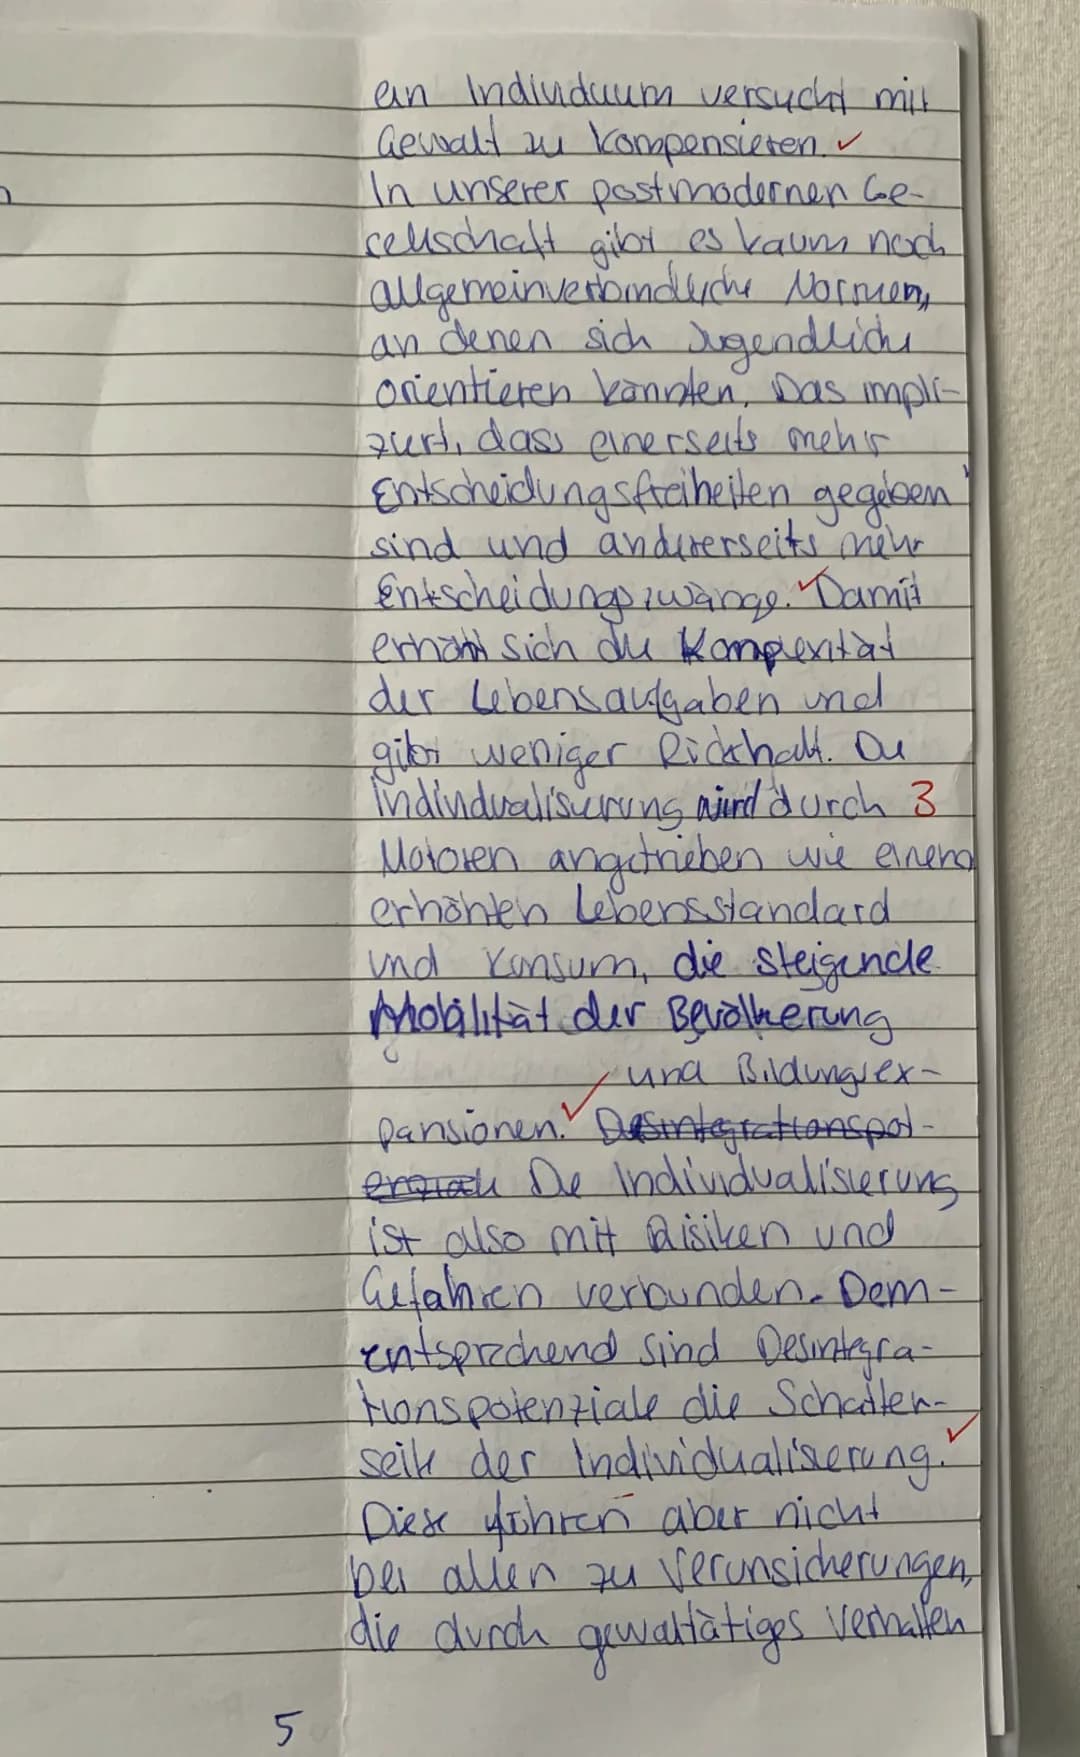 ein Individuum versucht mit
Gewalt zu kompensieren. ✓
In unserer postmodernen Ge-
sellschaft gibt es kaum noch
allgemeinverbindliche Normen,
an denen sich Jugendliche
orientieren könnten. Das impli-
ziert, dass einerseits mehr
Entscheidungsfreiheiten gegeben
sind und andererseits mehr
Entscheidungszwänge. ✓ Damit
erhöht sich die Komplexität
der Lebensaufgaben und
gibt weniger Rückhalt. Die
Individualisierung wird durch 3
Motoren angetrieben wie einem
erhöhten Lebensstandard
und Konsum, die steigende
Mobilität der Bevölkerung
und Bildungsex-
pansionen. ✓ Desintegrationspot-
enziale Die Individualisierung
ist also mit Risiken und
Gefahren verbunden. Dem-
entsprechend sind Desintegra-
tionspotenziale die Schatten-
seite der Individualisierung. ✓
Diese führen aber nicht
bei allen zu Verunsicherungen,
die durch gewalttätiges Verhalten
5